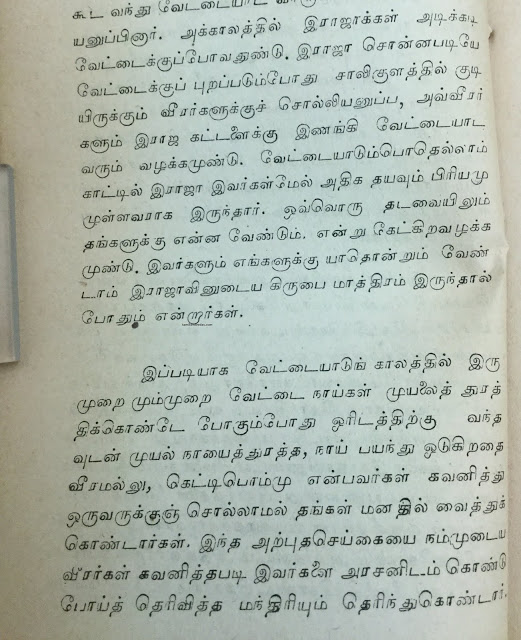 கூட வந்து வேட்டையாட
யனுப்பினார். அக்காலத்தில் இராஜாக்கள் அடிக்கடி
வேட்டைக்குப்போவதுண்டு. இராஜா சொன்னபடியே
வேட்டைக்குப் புறப்படும்போது சாலிகுளத்தில் குடி
யிருக்கும் வீரர்களுக்குச் சொல்லியனுப்ப, அவ்வீரர்
களும் இராஜ கட்டளைக்கு இணங்கி வேட்டையாட
வரும் வழக்கமுண்டு. வேட்டையாடும்பொதெல்லாம்
காட்டில் இராஜா இவர்கள்மேல் அதிக தயவும் பிரியமு
முள்ளவராக இருந்தார். ஒவ்வொரு தடவையிலும்
தங்களுக்கு என்ன வேண்டும். என்று கேட்கிறவழக்க
முண்டு. இவர்களும் எங்களுக்கு யாதொன்றும் வேண்
டாம் இராஜாவினுடைய கிருபை மாத்திரம் இருந்தால்
போதும் என்றார்கள்.
இப்படியாக வேட்டையாடுங் காலத்தில் இரு
முறை மும்முறை வேட்டை நாய்கள் முயலைத் துரத்
திக்கொண்டே போகும்போது ஓரிடத்திற்கு வந்த
வுடன் முயல் நாயைத்துரத்த, நாய் பயந்து ஓடுகிறதை
வீரமல்லு, கெட்டிபொம்மு என்பவர்கள் கவனித்து
ஒருவருக்குஞ் சொல்லாமல் தங்கள் மனதில் வைத்துக்
கொண்டார்கள். இந்த அற்புதசெய்கையை நம்முடைய
வீரர்கள் கவனித்தபடி இவர்களை அரசனிடம் கொண்டு
போய்த் தெரிவித்த மந்திரியும் தெரிந்துகொண்டார்.